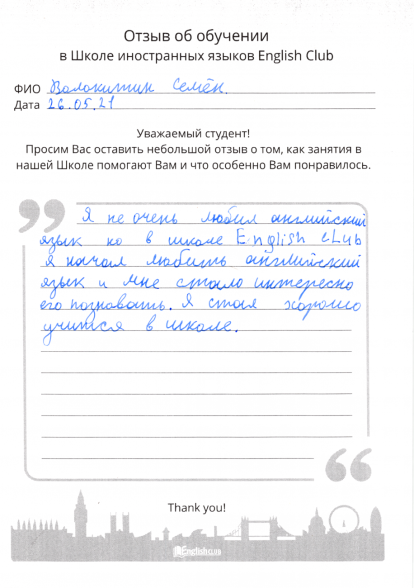 Отзыв об обучении
в Школе иностранных языков English Club
ФИО Волокитин Семён.
Дата 26.05.21
Уважаемый студент!
Просим Вас оставить небольшой отзыв о том, как занятия в
нашей Школе помогают Вам и что особенно Вам понравилось.
Я не очень любил английский
язык но в школе English cLub
я начал любить английский
язык и мне стало интересно
его познавать. Я стал хорошо
учится в школе.
Thank you!
EnglishClub